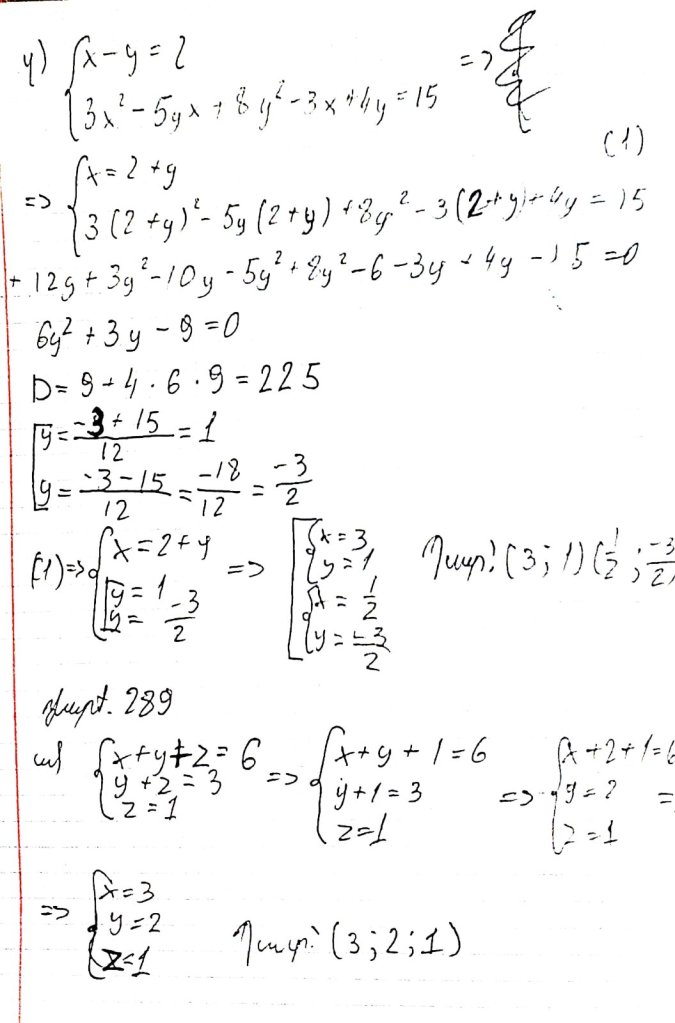 դ) { x - y = 2
3x² - 5yx + 8y² - 3x + 4y = 15 =>
(1)
=> { x = 2 + y
3(2+y)² - 5y(2+y) + 8y² - 3(2+y) + 4y = 15
+ 12y + 3y² - 10y - 5y² + 8y² - 6 - 3y + 4y - 15 = 0
6y² + 3y - 9 = 0
D = 9 + 4 · 6 · 9 = 225
[ y = (-3 + 15)/12 = 1
y = (-3 - 15)/12 = -18/12 = -3/2
(1) => { x = 2 + y [ y = 1 y = -3/2 => [ { x = 3 y = 1 { x = 1/2 y = -3/2 Պատ՝ (3; 1) (1/2; -3/2)
վարժ. 289
ա) { x + y + z = 6 y + z = 3 z = 1 => { x + y + 1 = 6 y + 1 = 3 z = 1 => { x + 2 + 1 = 6 y = 2 z = 1 =
=> { x = 3 y = 2 z = 1 Պատ՝ (3; 2; 1)